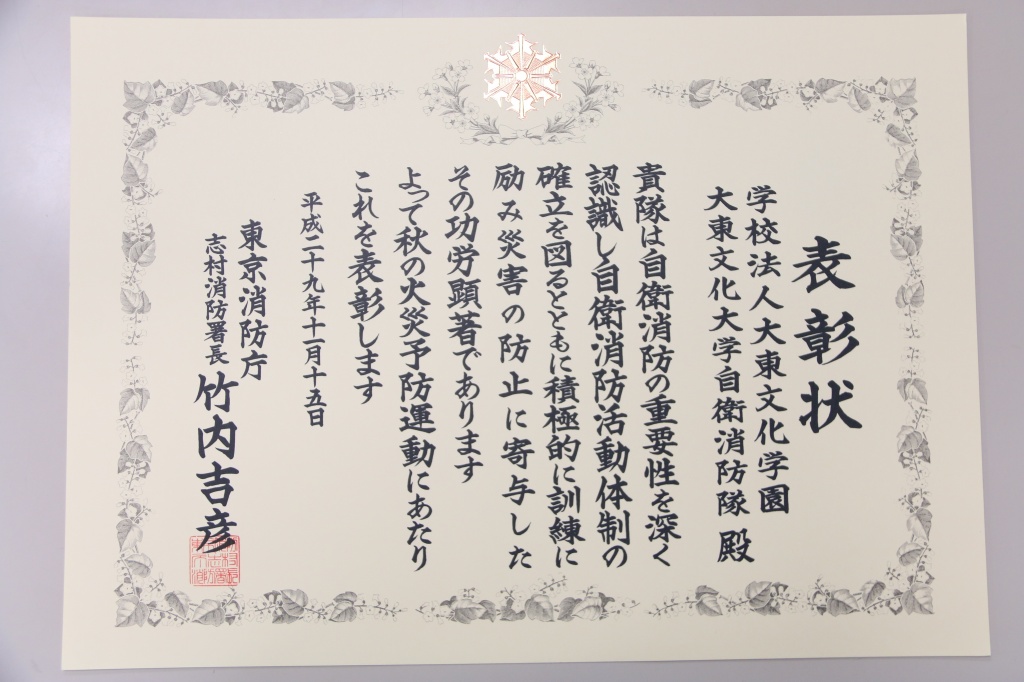 表彰状
学校法人大東文化学園
大東文化大学自衛消防隊 殿
貴隊は自衛消防の重要性を深く
認識し自衛消防活動体制の
確立を図るとともに積極的に訓練に
励み災害の防止に寄与した
その功労顕著であります
よって秋の火災予防運動にあたり
これを表彰します
平成二十九年十一月十五日
東京消防庁
志村消防署長 竹内吉彦